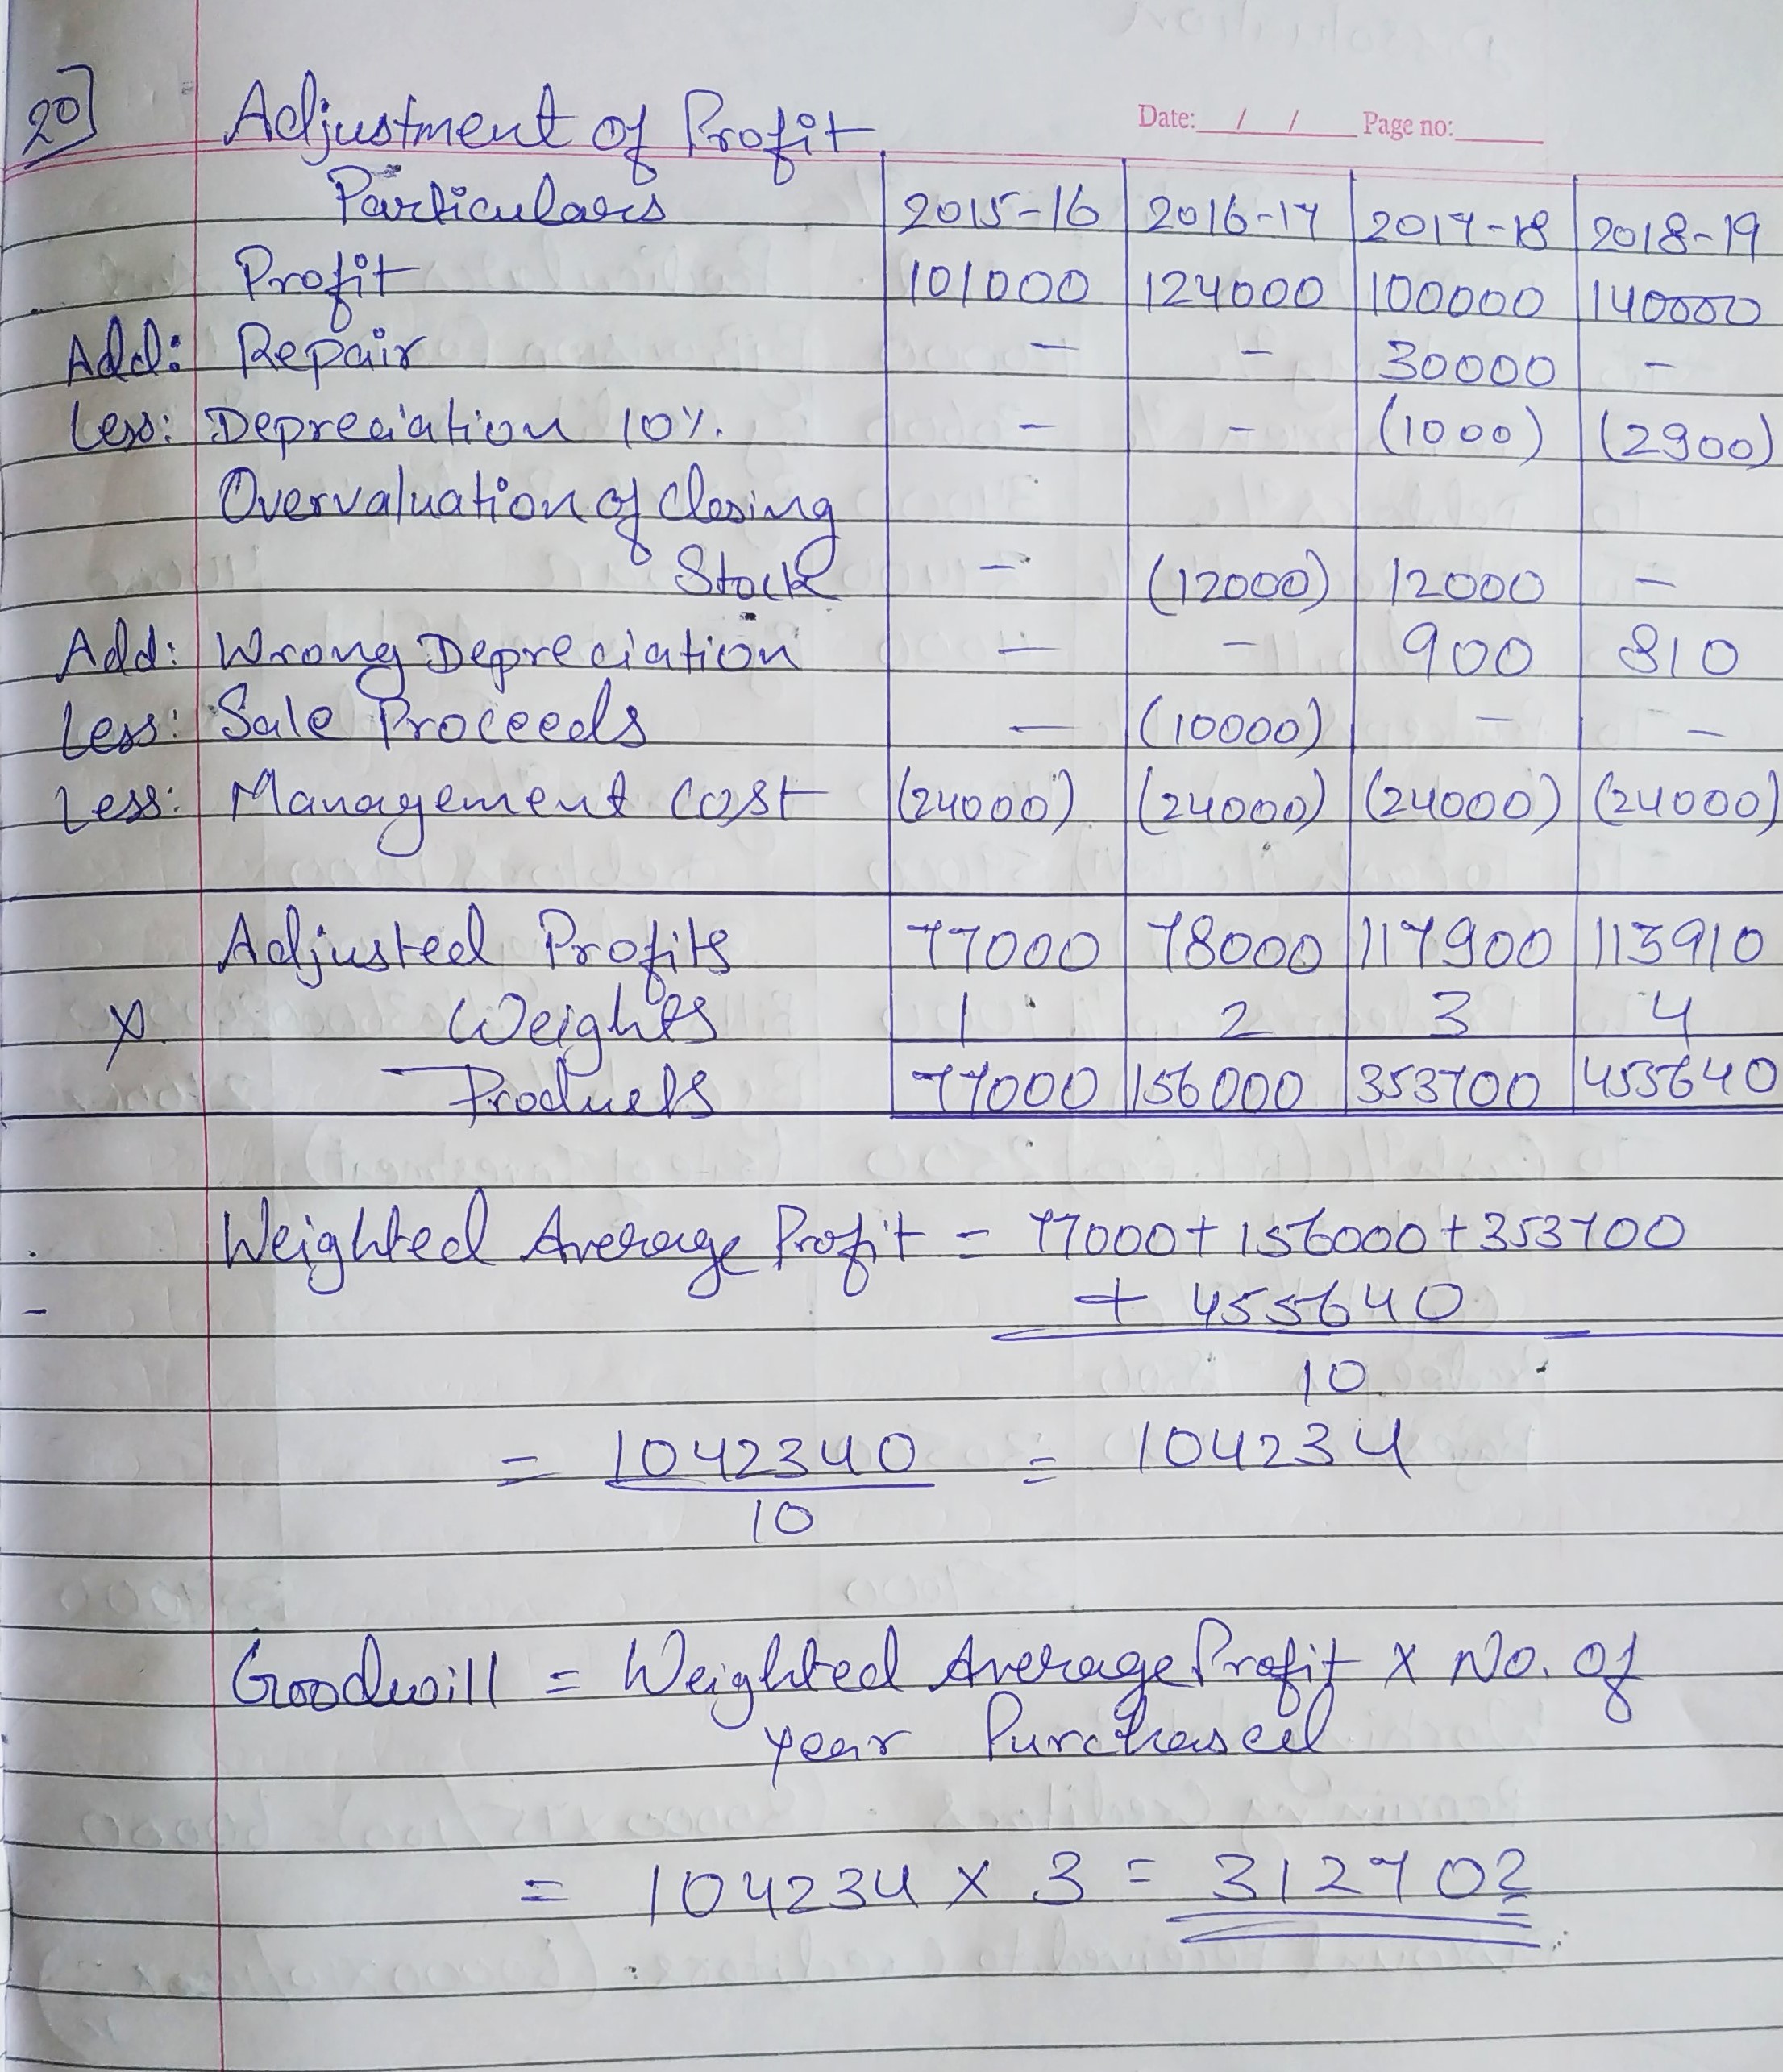 20]
Adjustment of Profit
Date: / / Page no:
Particulars 2015-16 2016-17 2017-18 2018-19
Profit 101000 124000 100000 140000
Add: Repair - - 30000 -
Less: Depreciation 10%. - - (1000) (2900)
Overvaluation of Closing
Stock - (12000) 12000 -
Add: Wrong Depreciation - - 900 810
Less: Sale Proceeds - (10000) - -
Less: Management Cost (24000) (24000) (24000) (24000)
Adjusted Profits 77000 78000 117900 113910
X Weights 1 2 3 4
Products 77000 156000 353700 455640
Weighted Average Profit = 77000 + 156000 + 353700
+ 455640
10
= 1042340 = 104234
10
Goodwill = Weighted Average Profit x No. of
year Purchased
= 104234 x 3 = 312702